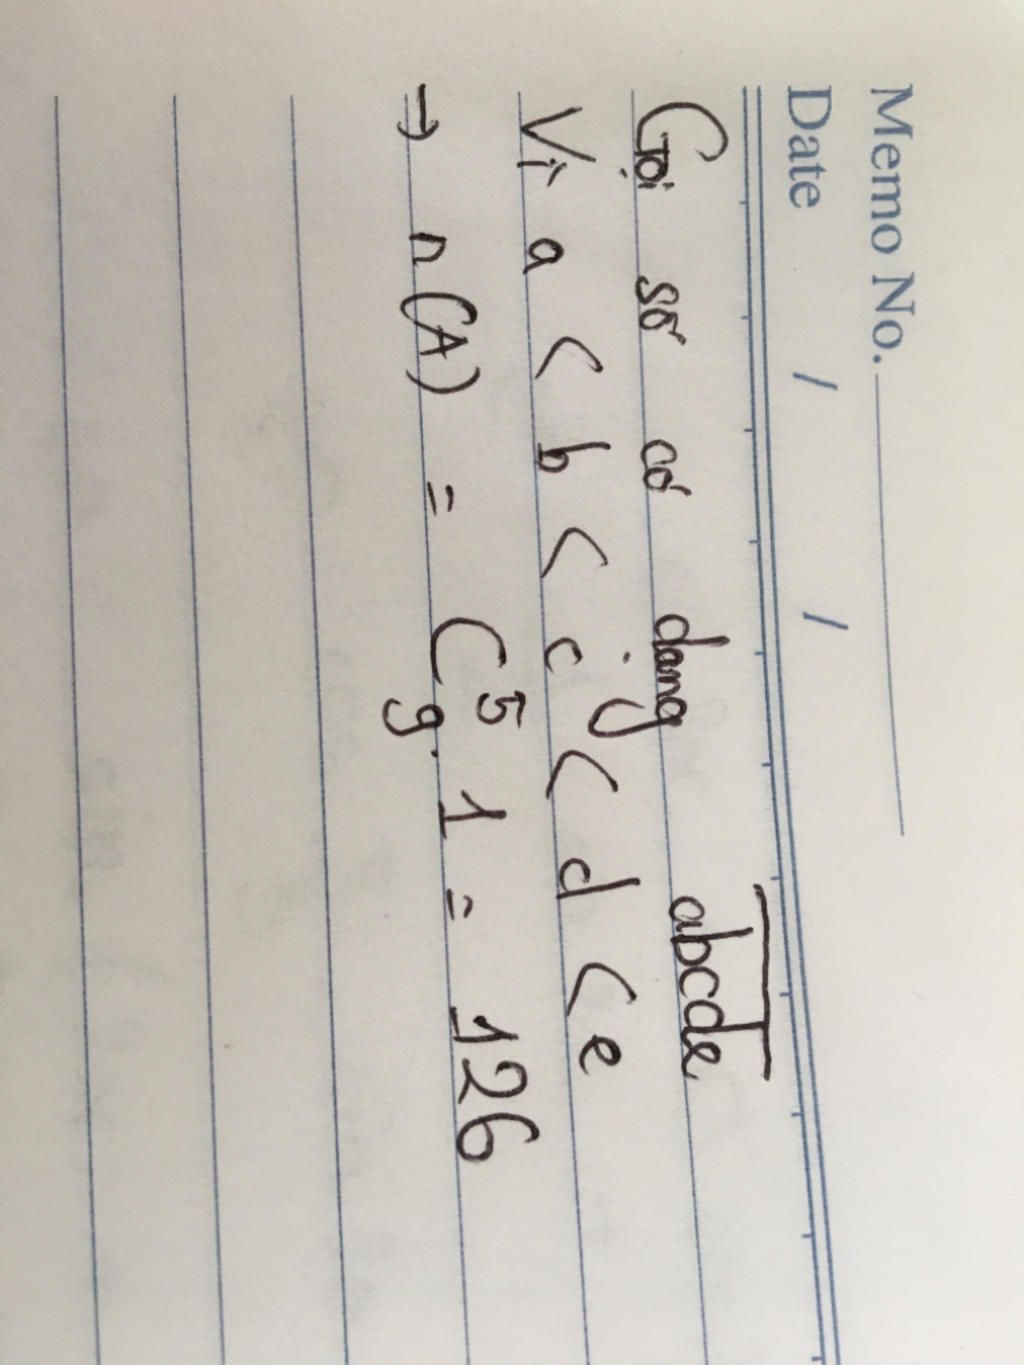 Memo No.
Date / /
Gọi số có dạng \overline{abcde}
Vì a < b < c < d < e
→ n(A) = C⁵₉.1 = 126